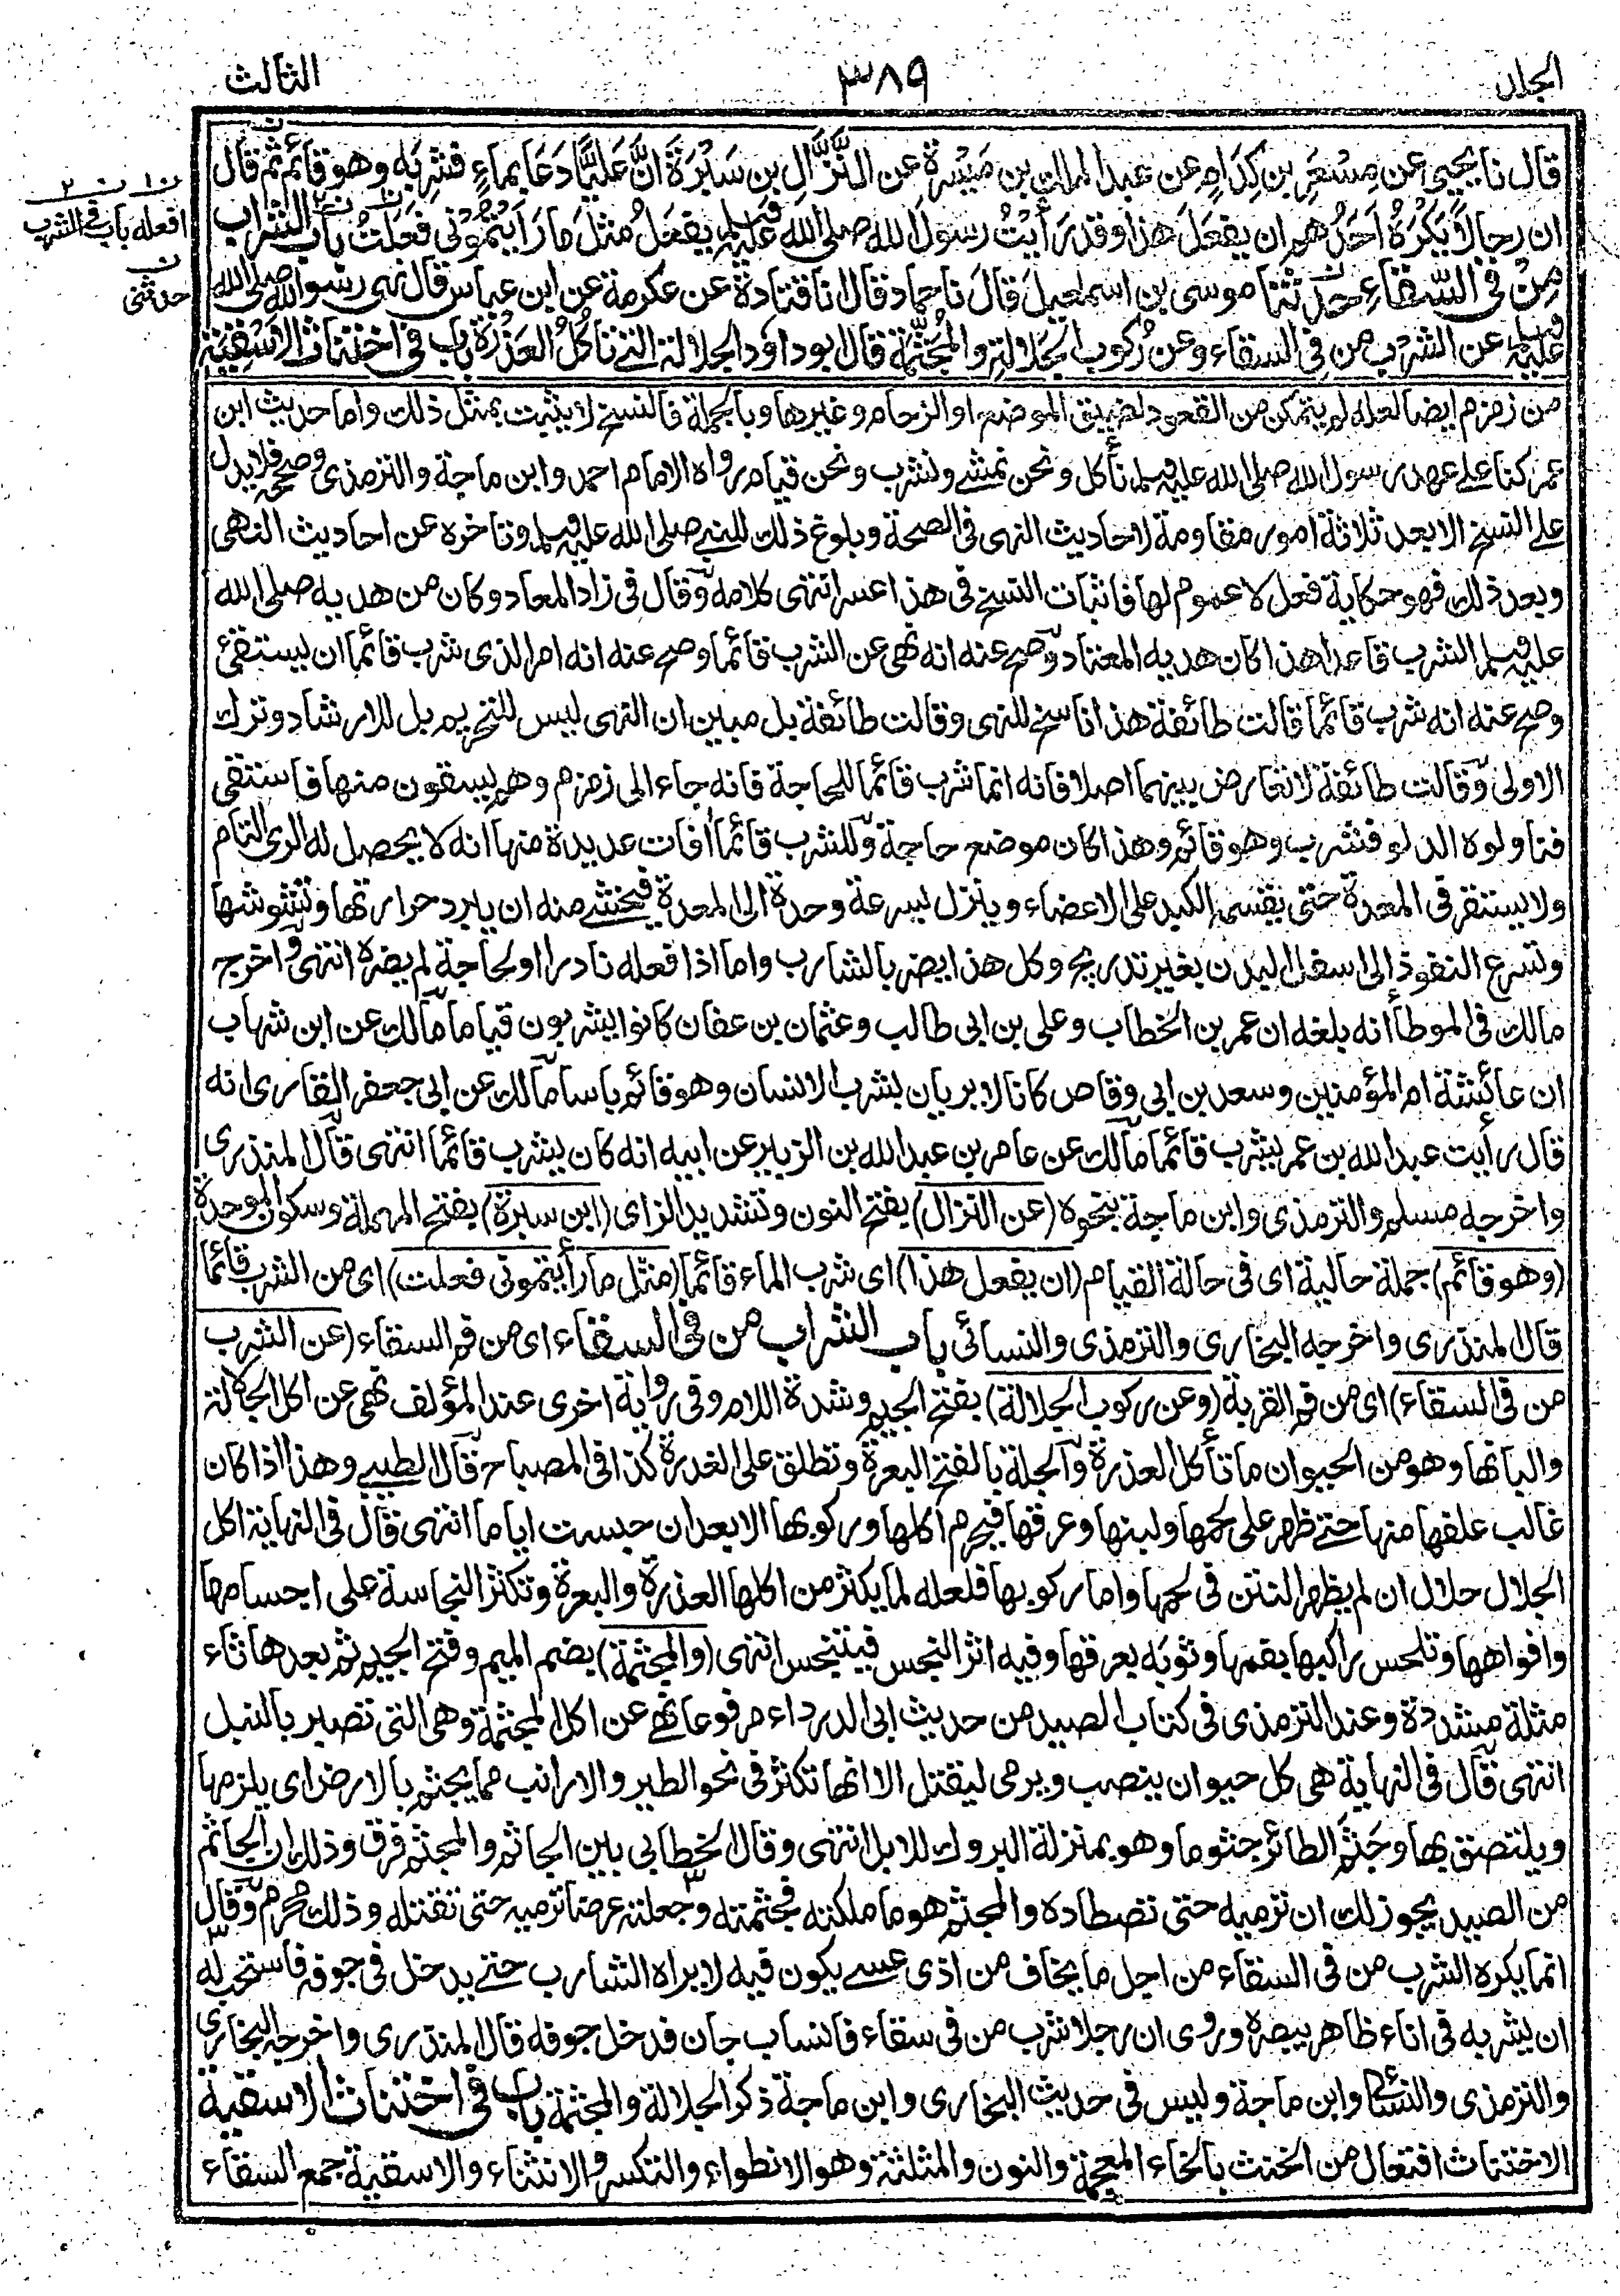 المجلد
٣٨٩
الثالث
قال نا يحيى عن مِسْعَرِ بن كِدَامٍ عن عبد الملك بن مَيْسَرةَ عن النَّزَّالِ بن سَبْرَةَ انَّ عَليًّا دَعَا بماءٍ فشرِبَه وهو قائم ثم قال
ان رجالاً يَكْرَهُ اَحَدُهم ان يفعَلَ هذا وقد رَأيْتُ رسولَ الله صلى الله عليه وسلم يفعَلُ مثلَ ما رَأيتُمُوْنى فعلتُ باب الشراب
مِنْ فى السّقاءِ حدثنا موسى بن اسمعيلَ قالَ نا حماد قال انا قتادة عن عكرمة عن ابن عباس قال نهى رسول الله صلى الله
عليه وسلم عن الشرْب من فِى السقاء وعن رُكوب الجَلالةِ والمُجَثَّمَةِ قال ابوداود الجلالة التى تأكُلُ العَذْرَةَ باب فى اختناث الاَسْقِيَةِ
ن١ ن٢
افعله باب فى الشرب
ن
حدثنى
من زمزم ايضا لعله لم يتمكن من القعود لضيق الموضع او الزحام وغيرها وبالجملة فالنسخ لا يثبت بمثل ذلك واما حديث ابن
عمر كنا على عهد رسول الله صلى الله عليه وسلم نأكل ونحن نمشى ونشرب ونحن قيام رواه الامام احمد وابن ماجة والترمذى وصححه فلا يدل
على النسخ الا بعد ثلاثة امور مقاومة لاحاديث النهى فى الصحة وبلوغ ذلك للنبى صلى الله عليه وسلم وتاخره عن احاديث النهى
وبعد ذلك فهو حكاية فعل لا عموم لها فاثبات النسخ فى هذا عسر انتهى كلامه وقال فى زاد المعاد وكان من هديه صلى الله
عليه وسلم الشرب قاعدا هذا كان هديه المعتاد وصح عنه انه نهى عن الشرب قائما وصح عنه انه امر الذى شرب قائما ان يستقئ
وصح عنه انه شرب قائما قالت طائفة هذا ناسخ للنهى وقالت طائفة بل مبين ان النهى ليس للتحريم بل للارشاد وترك
الاولى وقالت طائفة لا تعارض بينهما اصلا فانه انما شرب قائما للحاجة فانه جاء الى زمزم وهم يسقون منها فاستقى
فناولوه الدلو فشرب وهو قائم وهذا كان موضع حاجة وللشرب قائما أفات عديدة منها انه لا يحصل له الرى التام
ولا يستقر فى المعدة حتى يقسمه الكبد على الاعضاء وينزل بسرعة وحدة الى المعدة فيخشى منه ان يبرد حرارتها وتشوشها
وتسرع النفوذ الى اسفل البدن بغير تدريج وكل هذا يضر بالشارب واما اذا فعله نادرا او لحاجة لم يضره انتهى واخرج
مالك فى الموطأ انه بلغه ان عمر بن الخطاب وعلى بن ابى طالب وعثمان بن عفان كانوا يشربون قياما مالك عن ابن شهاب
ان عائشة ام المؤمنين وسعد بن ابى وقاص كانا لا يريان بشرب الانسان وهو قائم باسا مالك عن ابى جعفر القارى انه
قال رأيت عبد الله بن عمر يشرب قائما مالك عن عامر بن عبد الله بن الزبير عن ابيه انه كان يشرب قائما انتهى قال المنذرى
واخرجه مسلم والترمذى وابن ماجة بنحوه (عن النزال) بفتح النون وتشديد الزاى (ابن سبرة) بفتح المهملة وسكون الموحدة
(وهو قائم) جملة حالية اى فى حالة القيام (ان يفعل هذا) اى شرب الماء قائما (مثل ما رأيتمونى فعلت) اى من الشرب قائما
قال المنذرى واخرجه البخارى والترمذى والنسائى باب الشراب من فى السقاء اى من فم السقاء (عن الشرب
من فى السقاء) اى من فم القربة (وعن ركوب الجلالة) بفتح الجيم وشدة اللام وفى رواية اخرى عند المؤلف نهى عن اكل الجلالة
والبانها وهو من الحيوان ما تأكل العذرة والجلة بالفتح البعرة وتطلق على العذرة كذا فى المصباح قال الطيبى وهذا اذا كان
غالب علفها منها حتى ظهر على لحمها ولبنها وعرقها فيحرم اكلها وركوبها الا بعد ان حبست اياما انتهى قال فى النهاية اكل
الجلال حلال ان لم يظهر النتن فى لحمها واما ركوبها فلعله لما يكثر من اكلها العذرة والبعرة وتكثر النجاسة على اجسامها
وافواهها وتلحس راكبها بفمها وثوبه بعرقها وفيه اثر النجس فيتنجس انتهى (والمجثمة) بضم الميم وفتح الجيم ثم بعدها ثاء
مثلة مشددة وعند الترمذى فى كتاب الصيد من حديث ابى الدرداء مرفوعا نهى عن اكل المجثمة وهى التى تصبر بالنبل
انتهى قال فى النهاية هى كل حيوان ينصب ويرمى ليقتل الا انها تكثر فى نحو الطير والارانب مما يجثم بالارض اى يلزمها
ويلتصق بها وجَثَم الطائر جثوما وهو بمنزلة البروك للابل انتهى وقال الخطابى بين الجاثم والمجثم فرق وذلك ان الجاثم
من الصيد يجوز لك ان ترميه حتى تصطاده والمجثم هو ما ملكته فجثمته وجعلته عرضا ترميه حتى تقتله وذلك محرم وقال
انما يكره الشرب من فى السقاء من اجل ما يخاف من اذى عسى يكون فيه لا يراه الشارب حتى يدخل فى جوفه فاستحب له
ان يشربه فى اناء ظاهر يبصره وروى ان رجلا شرب من فى سقاء فانساب جان فدخل جوفه قال المنذرى واخرجه البخارى
والترمذى والنسائى وابن ماجة وليس فى حديث البخارى وابن ماجة ذكر الجلالة والمجثمة باب فى اختناث الاسقية
الاختناث افتعال من الخنث بالخاء المعجمة والنون والمثلثة وهو الانطواء والتكسر والانثناء والاسقية جمع السقاء